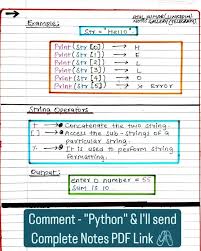 Example:
Str = "Hello"
Print (Str [0]) → H
Print (Str [1]) → E
Print (Str [2]) → L
Print (Str [3]) → L
Print (Str [4]) → O
Print (Str [5]) → X Error
String Operators
+ → Concatenate the two string.
[] → Access the sub-strings of a
particular string.
% → It is used to perform string
formatting.
Output:
Enter a number = 55
Sum is 10
Comment - "Python" & I'll send
Complete Notes PDF Link